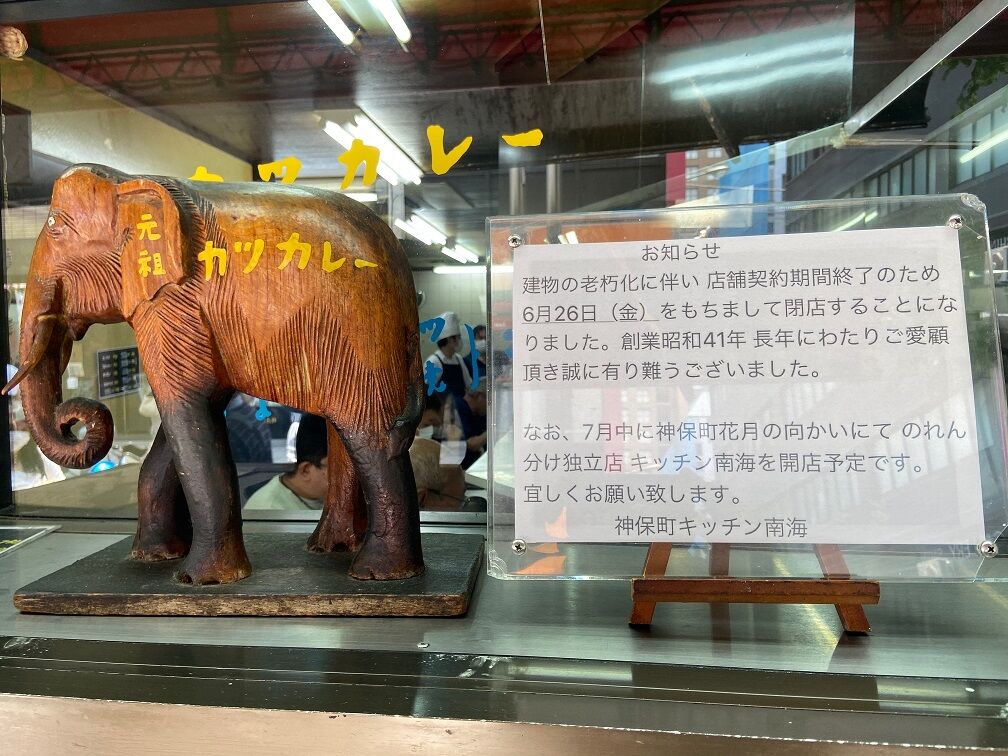 カツカレー
元祖
カツカレー
お知らせ
建物の老朽化に伴い 店舗契約期間終了のため
6月26日（金）をもちまして閉店することにな
りました。創業昭和41年 長年にわたりご愛顧
頂き誠に有り難うございました。
なお、7月中に神保町花月の向かいにて のれん
分け独立店 キッチン南海を開店予定です。
宜しくお願い致します。
神保町キッチン南海